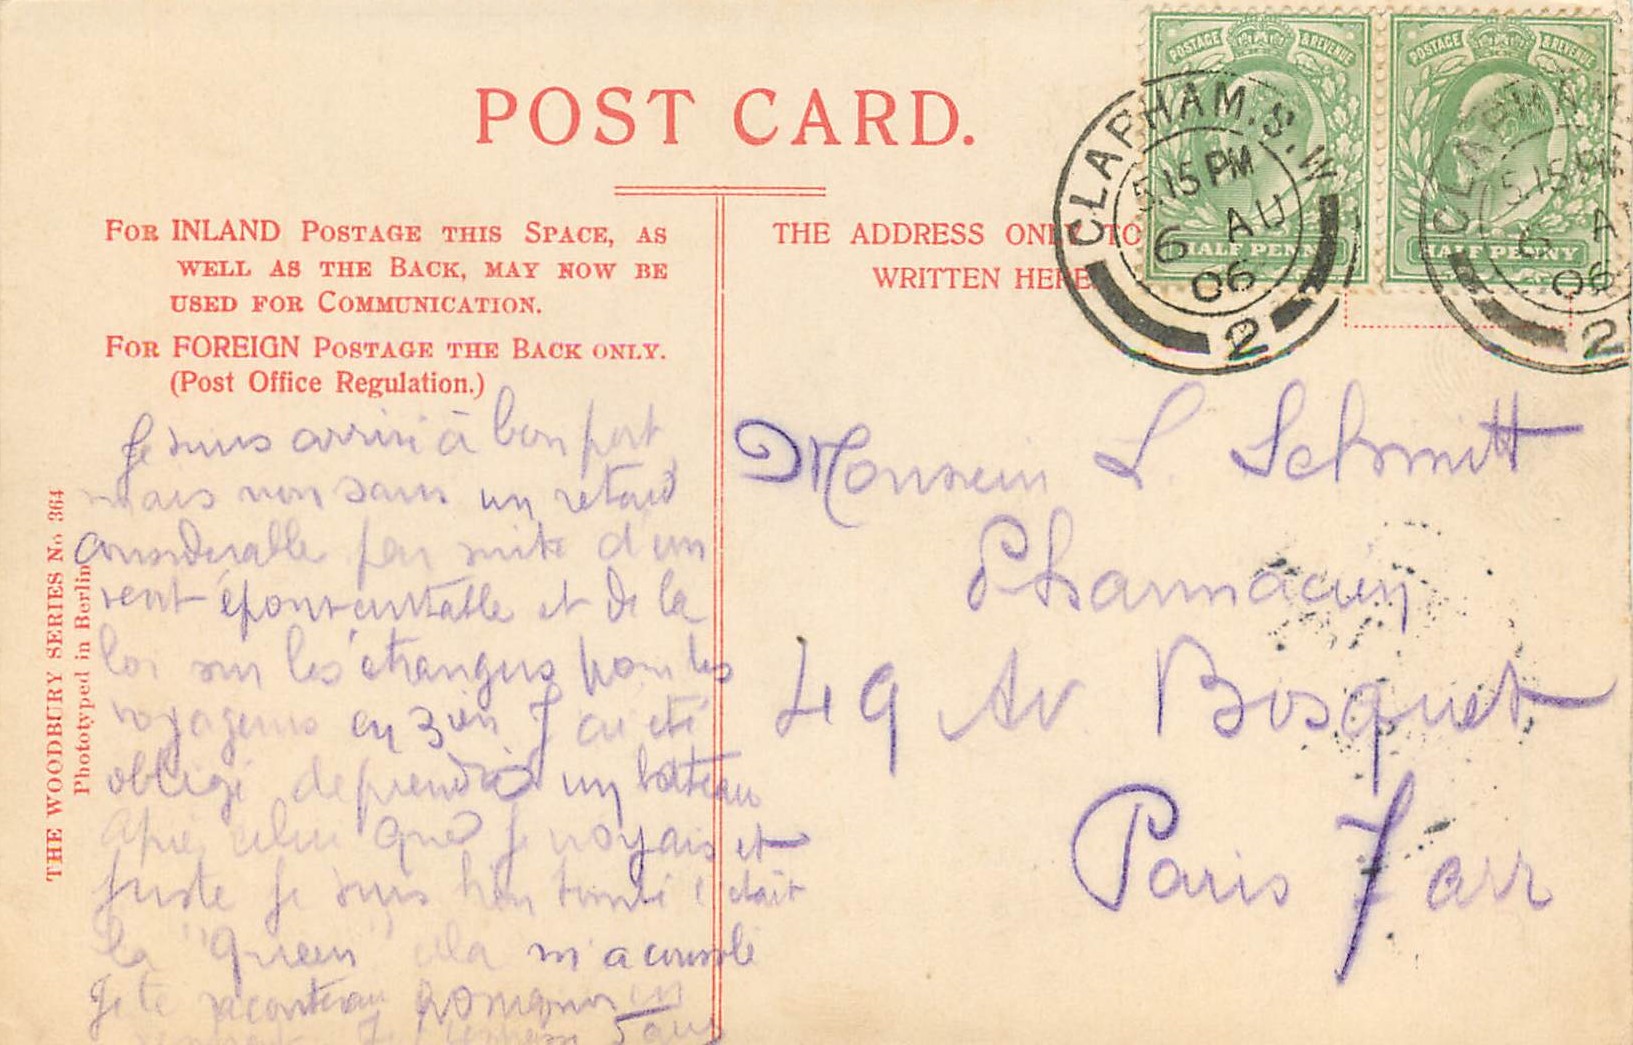 POST CARD.
FOR INLAND POSTAGE THIS SPACE, AS
WELL AS THE BACK, MAY NOW BE
USED FOR COMMUNICATION.
FOR FOREIGN POSTAGE THE BACK ONLY.
(Post Office Regulation.)
THE ADDRESS ONLY TO
WRITTEN HERE
POSTAGE & REVENUE
HALF PENNY
POSTAGE & REVENUE
HALF PENNY
CLAPHAM. S.W
5.15 PM
6 AU
06
2
CLAPHAM
5.15 PM
6 A
06
2
THE WOODBURY SERIES No. 364
Phototyped in Berlin
Je suis arrivé à bon port
mais non sans un retard
considerable par suite d'un
vent épouvantable et de la
loi sur les étrangers pour les
voyageurs en 3ièm J'ai été
obligé de prendre un bateau
après celui que je voyais et
juste je suis bien tombé c'était
la "Queen" cela m'a consolé
Je te raconterai
5 août
Monsieur L. Schmitt
Pharmacien
49 Av Bosquet
Paris 7 arr